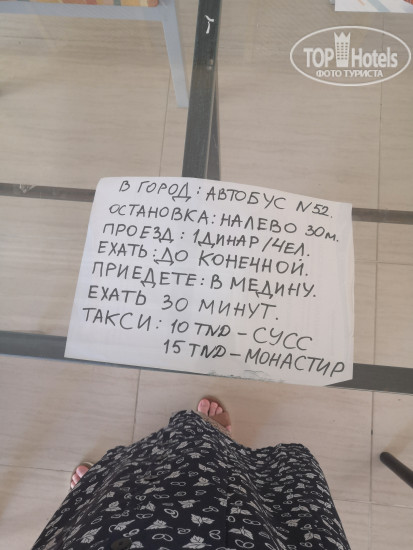 TOP Hotels
ФОТО ТУРИСТА
В ГОРОД: АВТОБУС N52.
ОСТАНОВКА: НАЛЕВО 30м.
ПРОЕЗД: 1 ДИНАР/ЧЕЛ.
ЕХАТЬ: ДО КОНЕЧНОЙ.
ПРИЕДЕТЕ: В МЕДИНУ.
ЕХАТЬ 30 МИНУТ.
ТАКСИ: 10 TND – СУСС
15 TND – МОНАСТИР